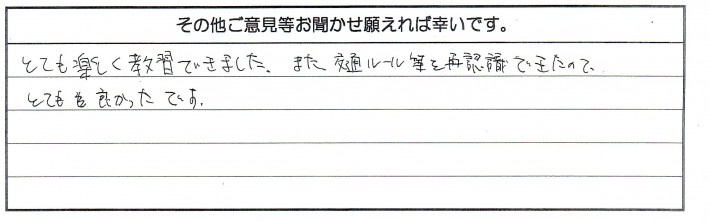 その他ご意見等お聞かせ願えれば幸いです。
とても楽しく教習できました。また交通ルール等を再認識できたので、
とても良かったです。